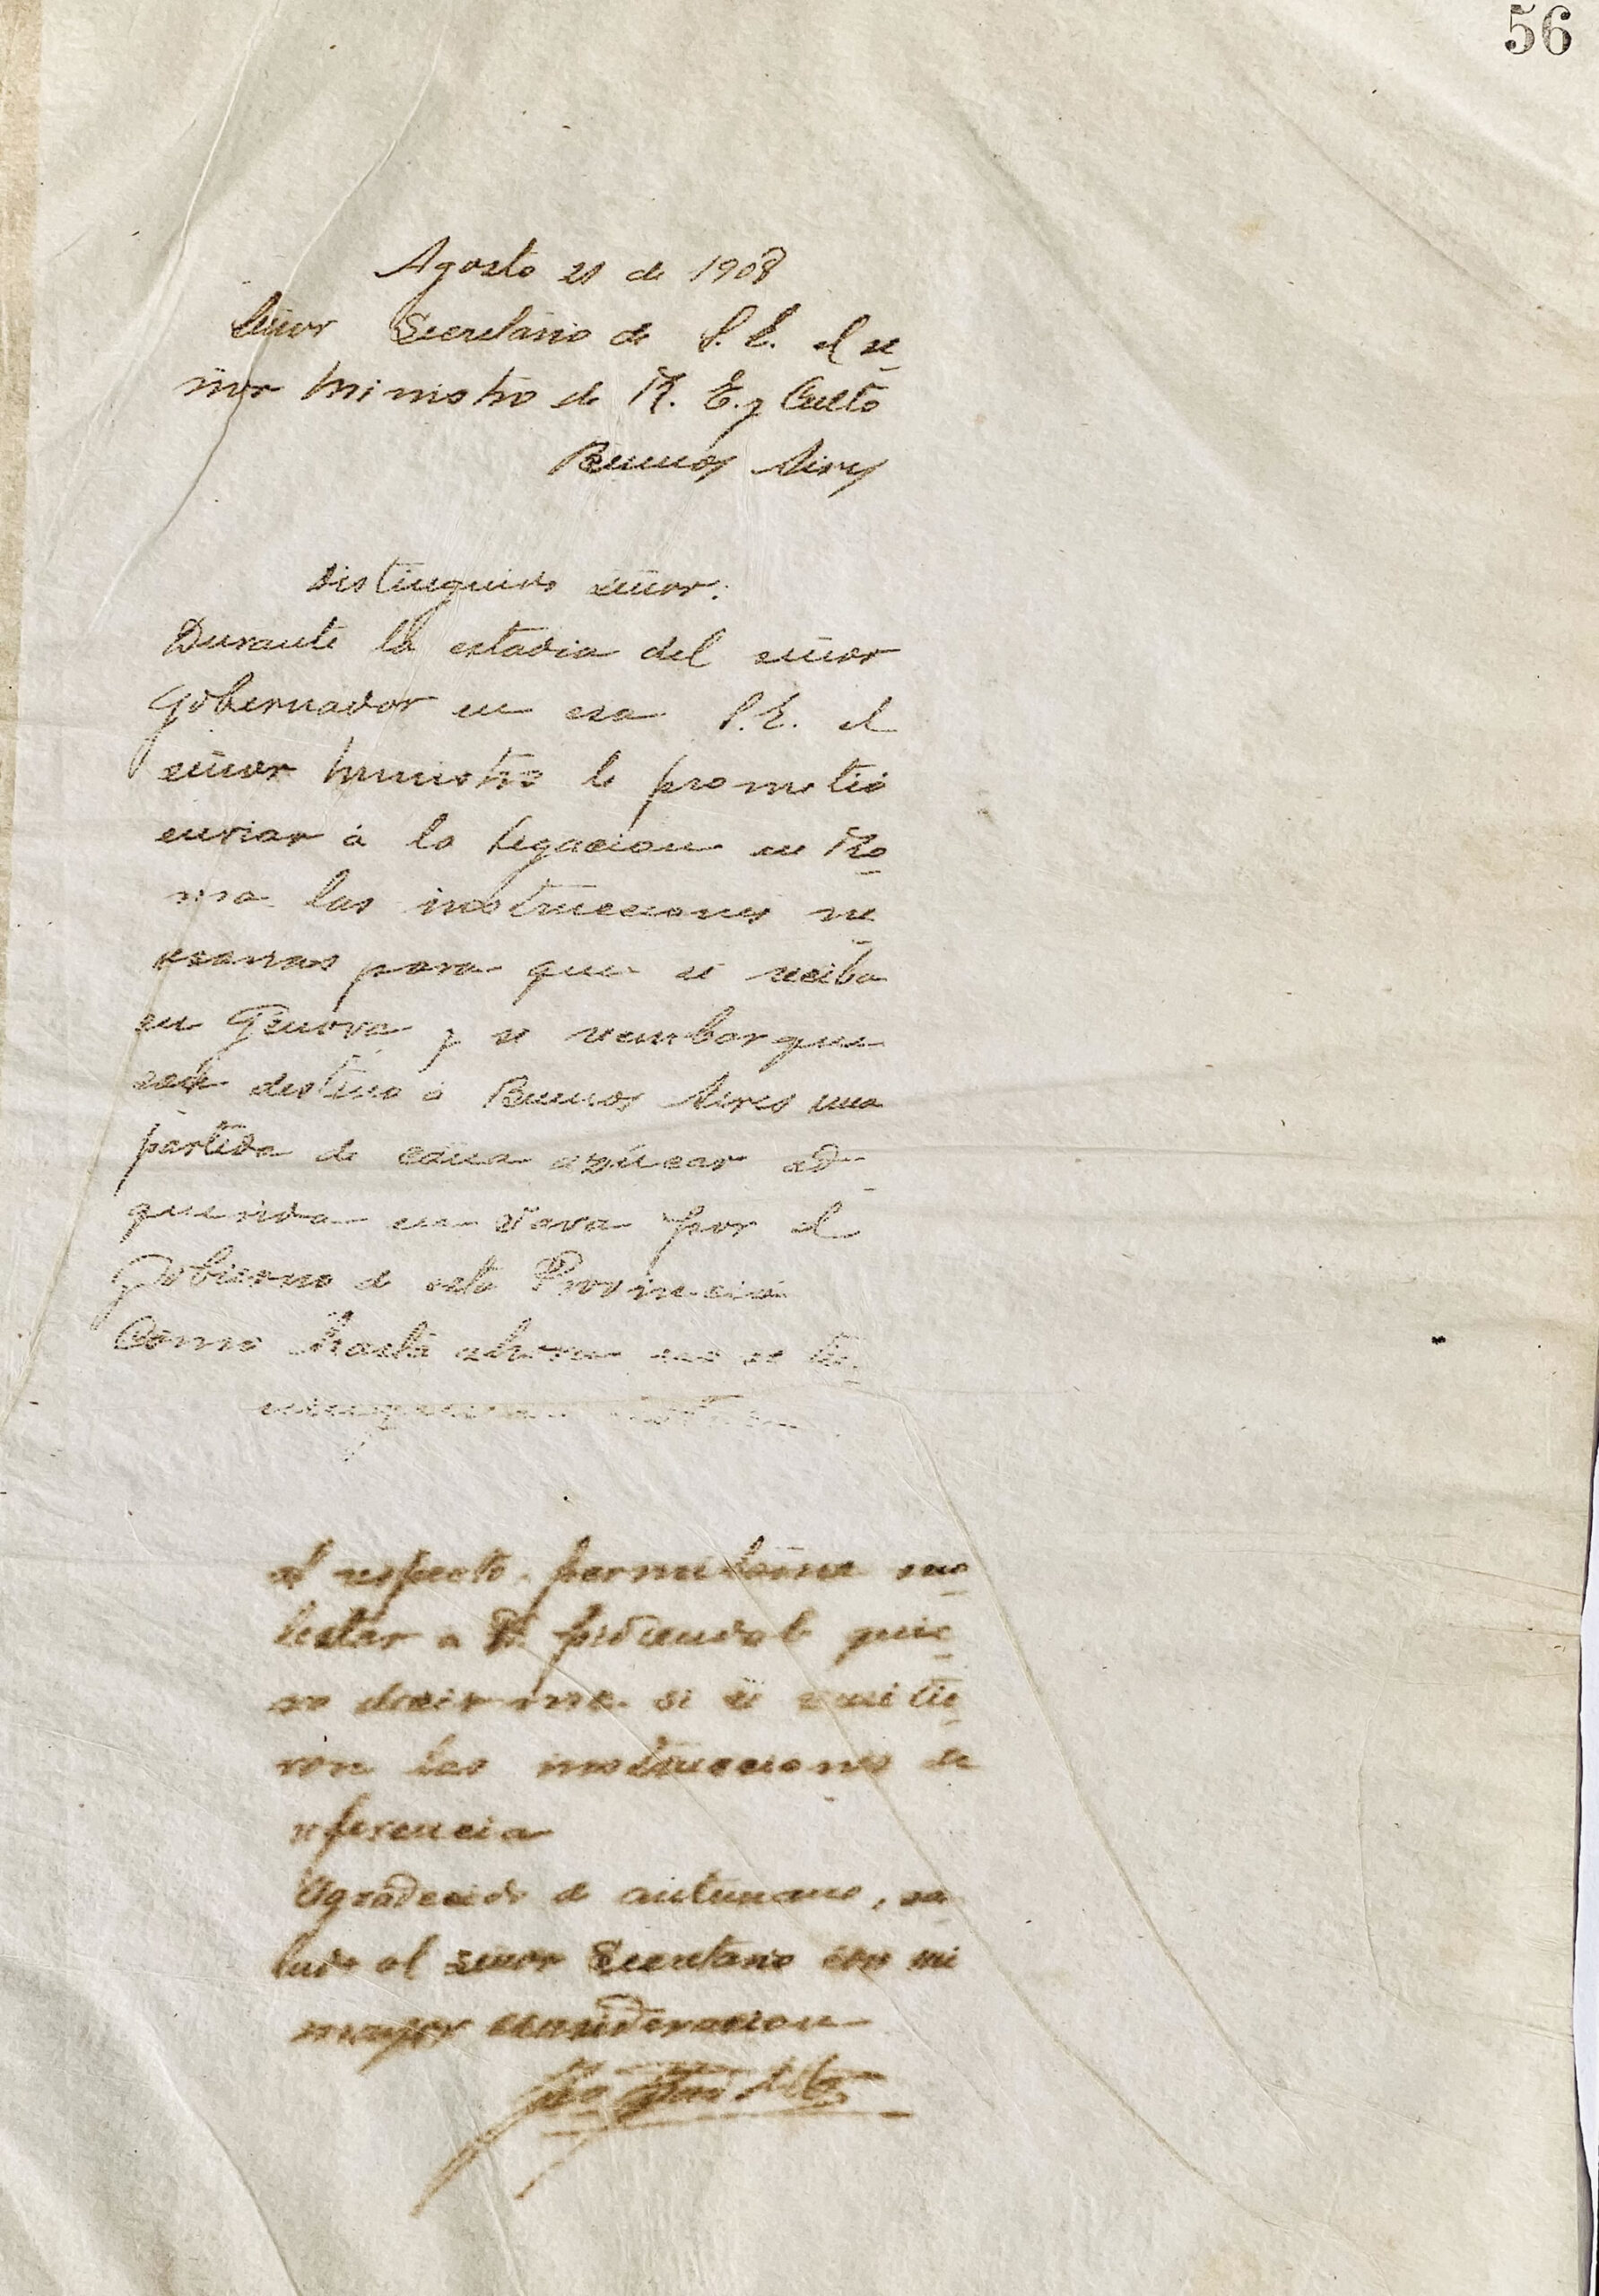 56
Agosto 21 de 1908
Señor Secretario de S. E. el se-
ñor Ministro de R. E. y Culto
Buenos Aires
Distinguido señor:
Durante la estadia del señor
Gobernador en esa S. E. el
señor Ministro le prometió
enviar á la Legacion en Ro-
ma las instrucciones ne-
cesarias para que se reciba
en Genova y se reembarque
con destino á Buenos Aires una
partida de caña azúcar ad-
querida en Java por el
Gobierno de esta Provincia
Como hasta ahora no se
al respecto, permitame mo-
lestar a Vd. pidiendole quie-
ra decirme si se remitie-
ron las instrucciones de
referencia
Agradecido de antemano, sa-
ludo al señor Secretario con mi
mayor consideracion